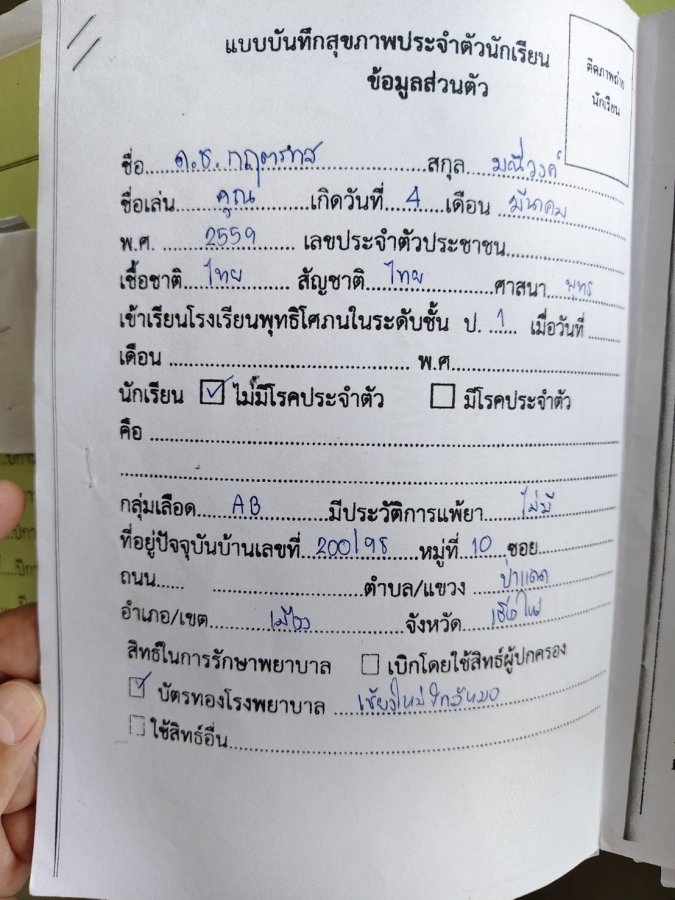 แบบบันทึกสุขภาพประจำตัวนักเรียน
ข้อมูลส่วนตัว
ติดภาพถ่าย
นักเรียน
ชื่อ.... ด.ช. ........สกุล... มณีวงค์
ชื่อเล่น...... คุณ ......เกิดวันที่... 4 ...เดือน... มีนาคม
พ.ศ. ...... 2559 ...... เลขประจำตัวประชาชน..................
เชื้อชาติ... ไทย ......... สัญชาติ... ไทย .........ศาสนา... พุทธ
เข้าเรียนโรงเรียนพุทธิโศภนในระดับชั้น ป. ..1... เมื่อวันที่......
เดือน .................................... พ.ศ............................
นักเรียน ☑ ไม่มีโรคประจำตัว ☐ มีโรคประจำตัว
คือ ..................................................................
กลุ่มเลือด...... AB .........มีประวัติการแพ้ยา...... ไม่มี
ที่อยู่ปัจจุบันบ้านเลขที่.. 200/98 ....หมู่ที่.. 10 ..ซอย.........
ถนน..... ......................ตำบล/แขวง...... ป่าแดด
อำเภอ/เขต......... เมือง .........จังหวัด...... เชียงใหม่
สิทธิ์ในการรักษาพยาบาล ☐ เบิกโดยใช้สิทธิ์ผู้ปกครอง
☑ บัตรทองโรงพยาบาล ... เชียงใหม่ใกล้หมอ
☐ ใช้สิทธิ์อื่น..................................................